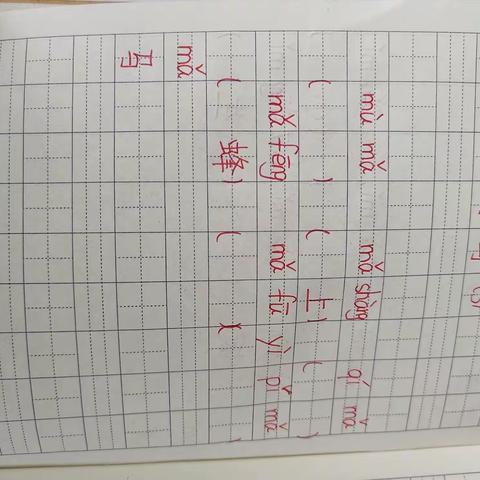 mù mǎ mǎ shàng qí mǎ
( ) ( 上) ( )
mǎ fēng mǎ fū yì pǐ mǎ
( 蜂) ( )( )
mǎ
马